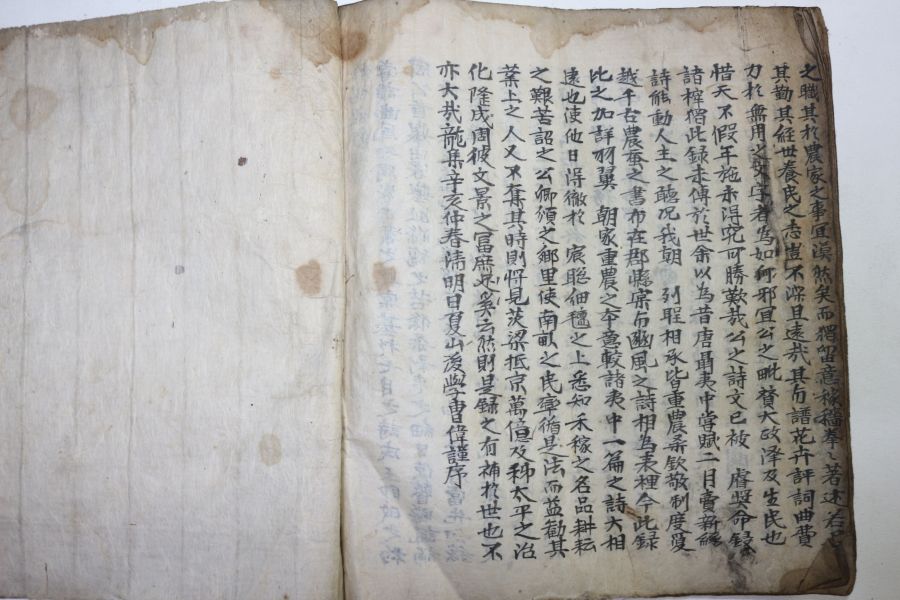 之職其於農家之事宜漠然矣而獨留意稼穡拳〻著述若是
其勤其經世養民之志豈不深且遠哉其與譜花卉評詞曲費
力於無用之文字者為如何邪宜公之毗贊大政澤及生民也
惜天不假年施未得究可勝歎哉公之詩文已被 睿奬命錄
諸榟獨此錄未傳於世余以為昔唐聶夷中嘗賦二月賣新絲
詩能動人主之聽况我朝 列聖相承皆重農桑欽敬制度愛
越乎古農蚕之書布在郡縣實與豳風之詩相為表裡今此錄
比之加詳羽翼 朝家重農之本意較諸夷中一篇之詩大相
遠也使他日得徹於 宸聡細氊之上悉知禾稼之名品耕耘
之艱苦詔之公卿頒之鄉里使南畝之民率循其法而益勸其
業上之人又不奪其時則將見茨梁抵京萬億及秭太平之治
化隆成周彼文景之富庶不足奚云然則是錄之有補於世也不
亦大哉龍集辛亥仲春淸明日夏山後學曺偉謹序